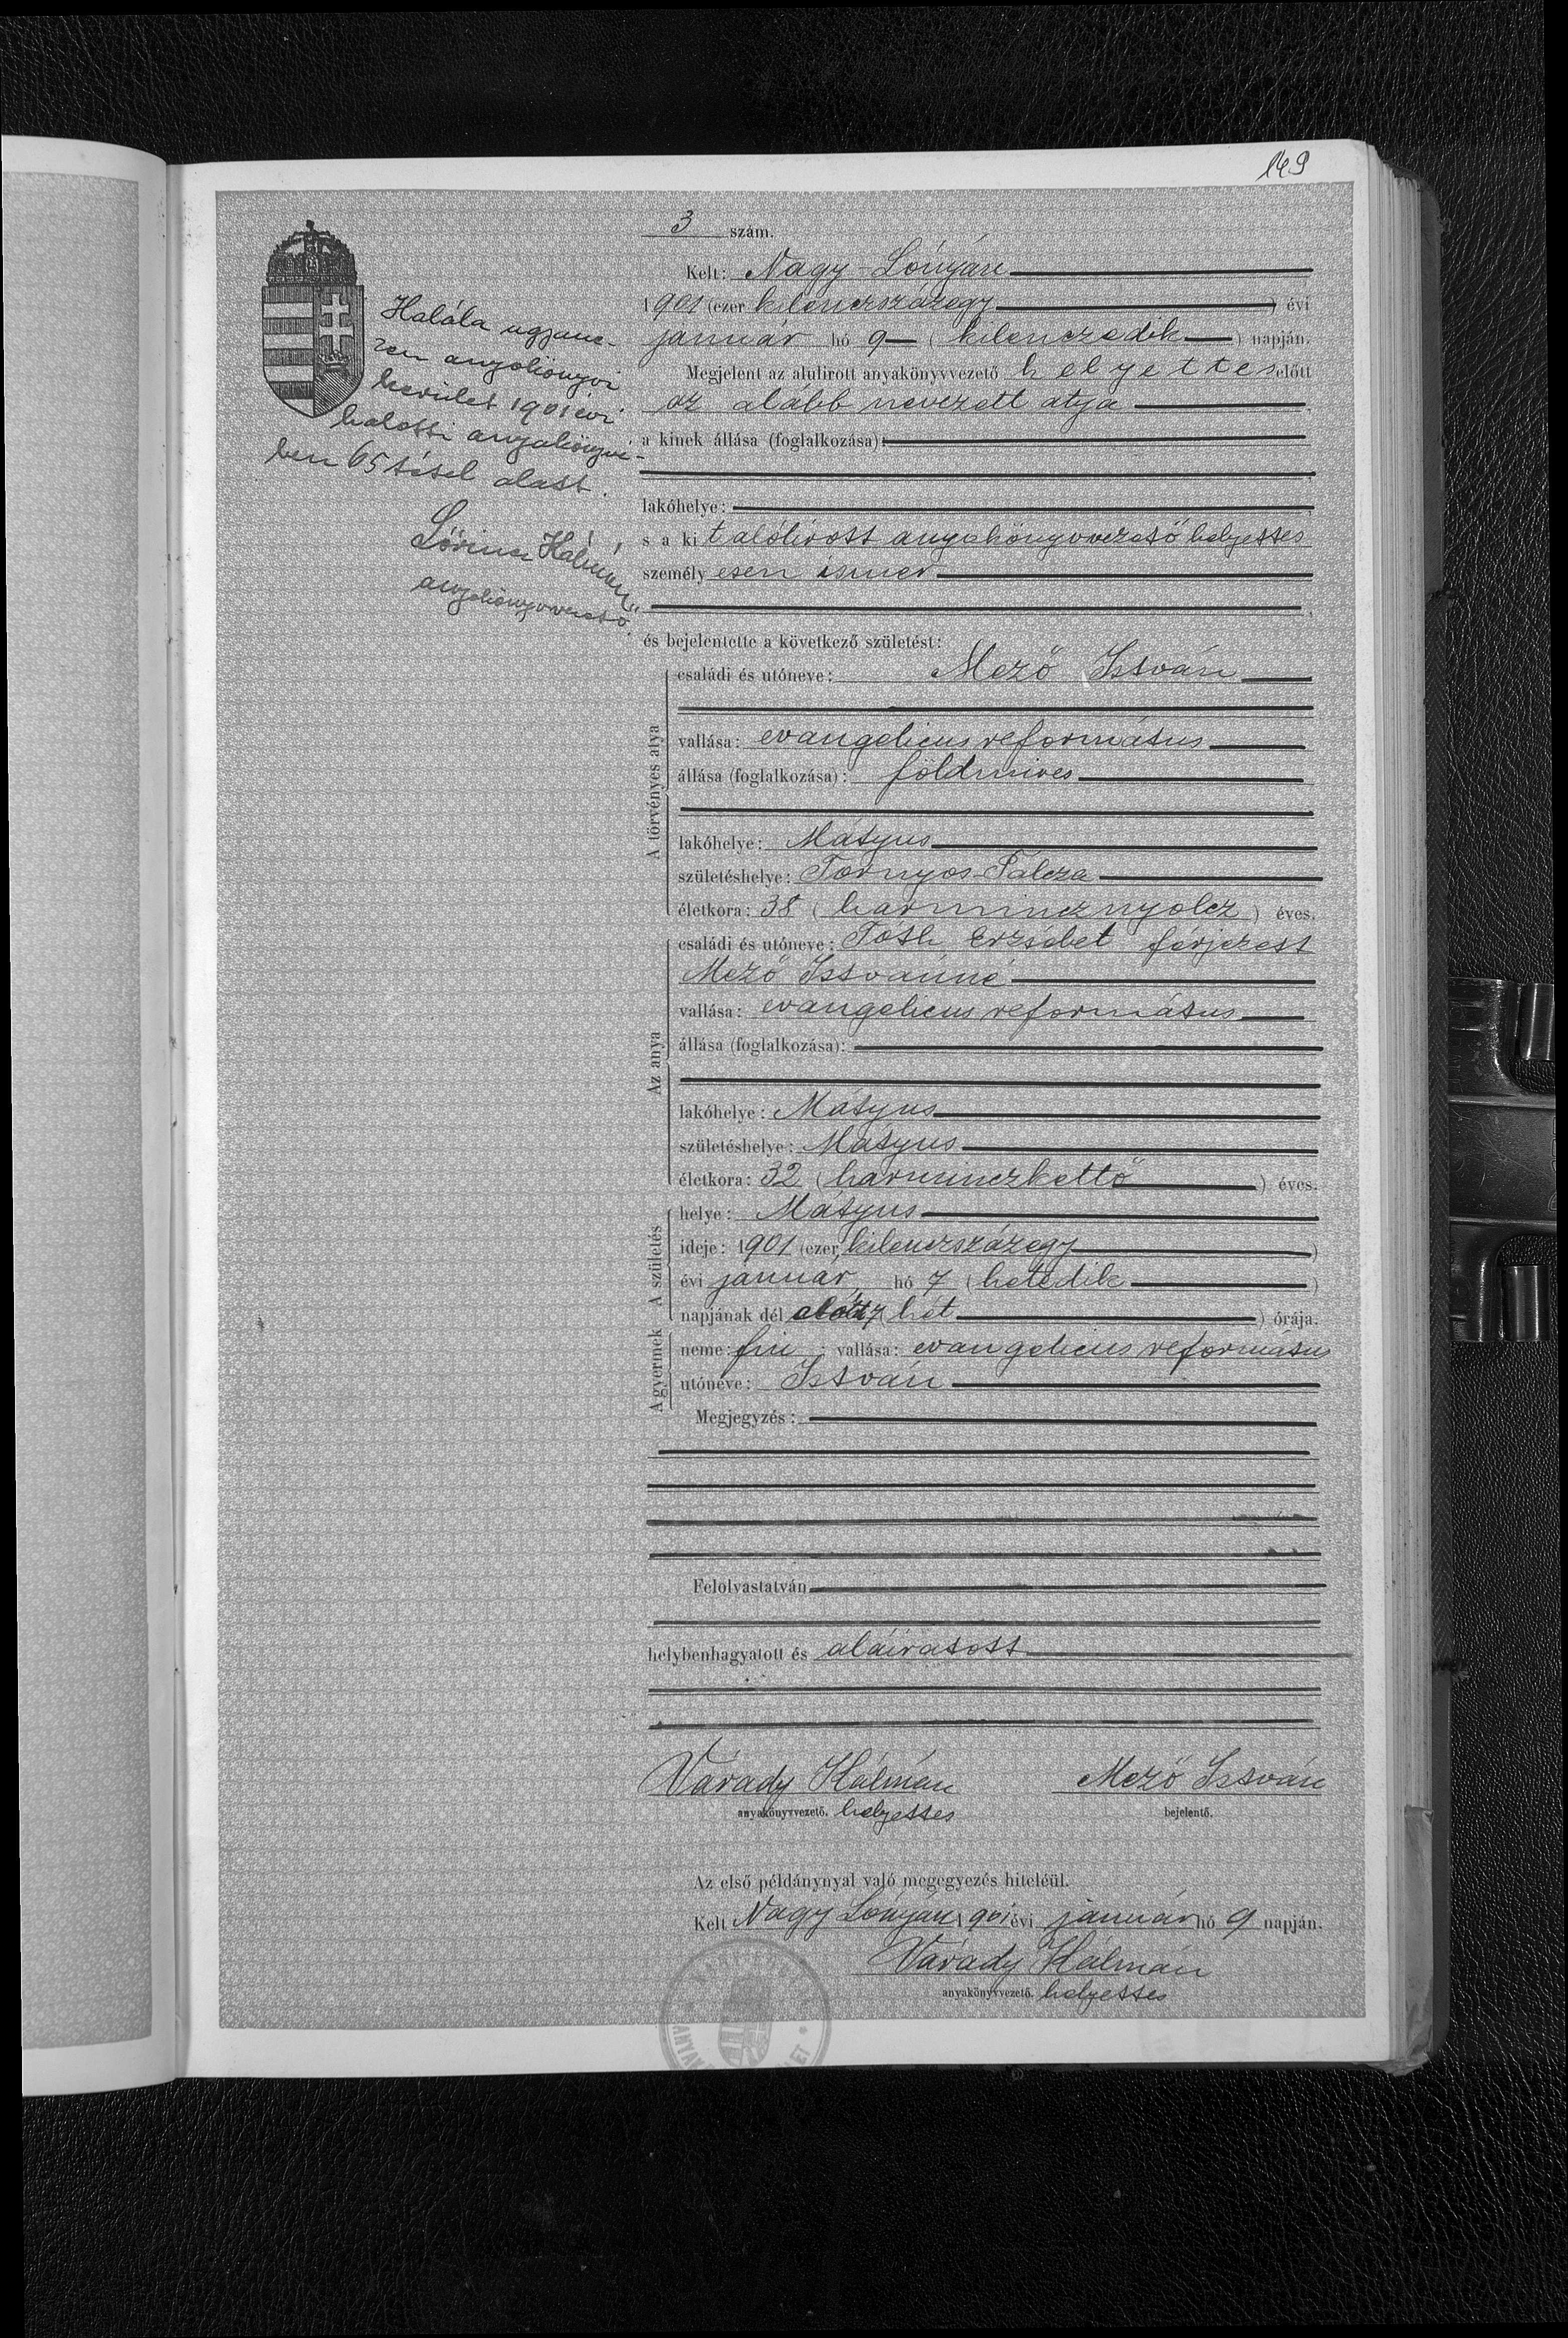 149
3 szám.
Kelt: Nagy-Lónyán
1901 (ezer kilenczszázegy ) évi
január hó 9 ( kilenczedik ) napján.
Megjelent az alulirott anyakönyvvezető helyettes előtt
az alább nevezett atya
a kinek állása (foglalkozása):
lakóhelye:
s a kit alólirott anyakönyvvezető helyettes
személyesen ismer
és bejelentette a következő születést:
A törvényes atya
családi és utóneve: Mező István
vallása: evangelicus református
állása (foglalkozása): földmives
lakóhelye: Mátyus
születéshelye: Tornyos-Pálcza
életkora: 38 ( harmincznyolcz ) éves.
Az anya
családi és utóneve: Tóth Erzsébet férjezett
Mező Istvánné
vallása: evangelicus református
állása (foglalkozása):
lakóhelye: Mátyus
születéshelye: Mátyus
életkora: 32 ( harminczkettő ) éves.
A születés
helye: Mátyus
ideje: 1901 (ezer kilenczszázegy )
évi január hó 7 ( hetedik )
napjának dél előtt 7 ( hét ) órája.
A gyermek
neme: fiu ; vallása: evangelicus református
utóneve: István
Megjegyzés:
Felolvastatván
helybenhagyatott és aláiratott
Várady Kálmán Mező István
anyakönyvvezető. helyettes bejelentő.
Az első példánynyal való megegyezés hiteléül.
Kelt Nagy Lónyán 1901 évi január hó 9 napján.
Várady Kálmán
anyakönyvvezető. helyettes
Halála ugyane-
zen anyakönyvi
kerület 1901 évi
halotti anyakönyvé-
ben 65 tétel alatt.
Lőrincz Kálmán
anyakönyvvezető.